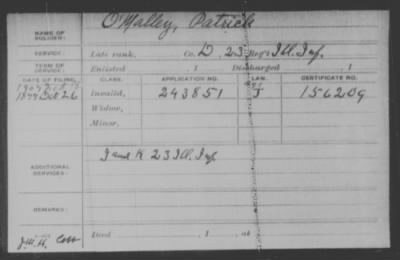 NAME OF SOLDIER: O'Malley, Patrick
SERVICE: Late rank, Co. D, 23 Reg't Ill. Inf.
TERM OF SERVICE: Enlisted , 1 Discharged , 1
DATE OF FILING. CLASS. APPLICATION NO. LAW. CERTIFICATE NO.
1877 Oct 26 Invalid, 243851 J 156209
Widow,
Minor,
ADDITIONAL SERVICES: I and K 23 Ill. Inf
REMARKS:
Died , 1 , at